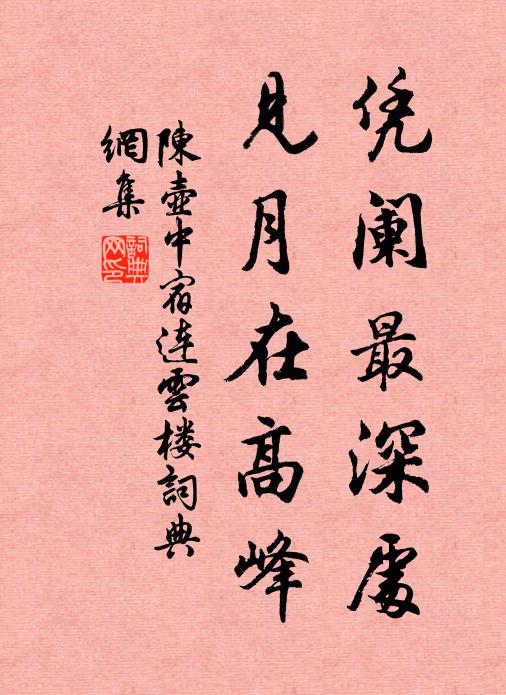 凭阑最深處
見月在高峰
陳壺中宿連雲楼詞典
網集
詞典
网印